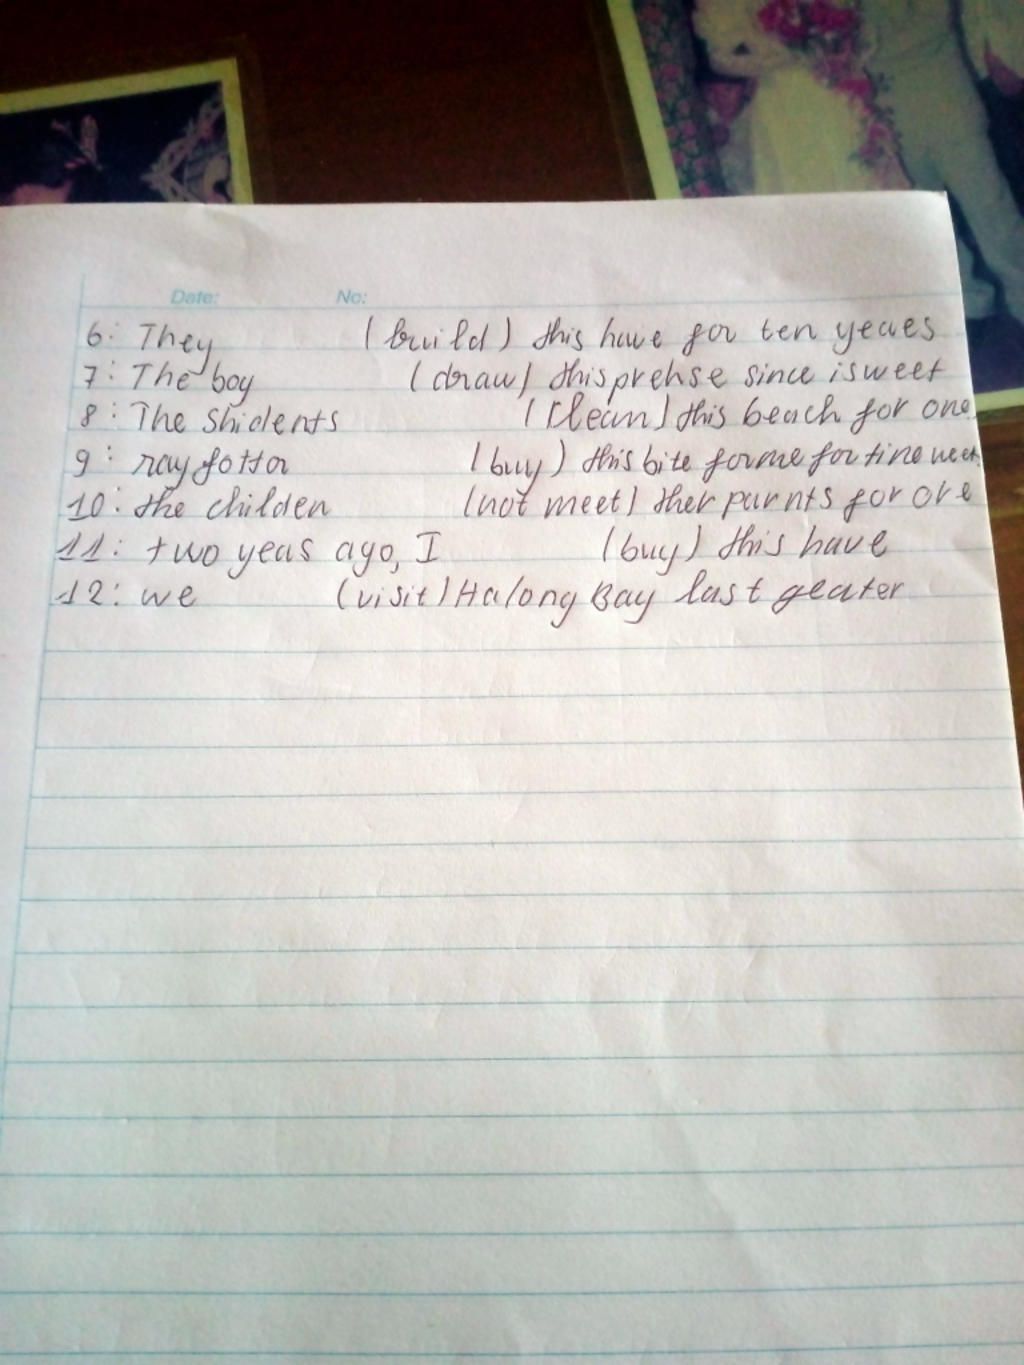 Date: No:
6: They (build) this have for ten yeaes
7: The boy (draw) this prehse since isweet
8: The Shidents (Clean) this beach for one
9: ray fotta (buy) this bite forme for tine week
10: the childen (not meet) ther parnts for ore
11: two yeas ago, I (buy) this have
12: we (visit) Halong Bay last geater